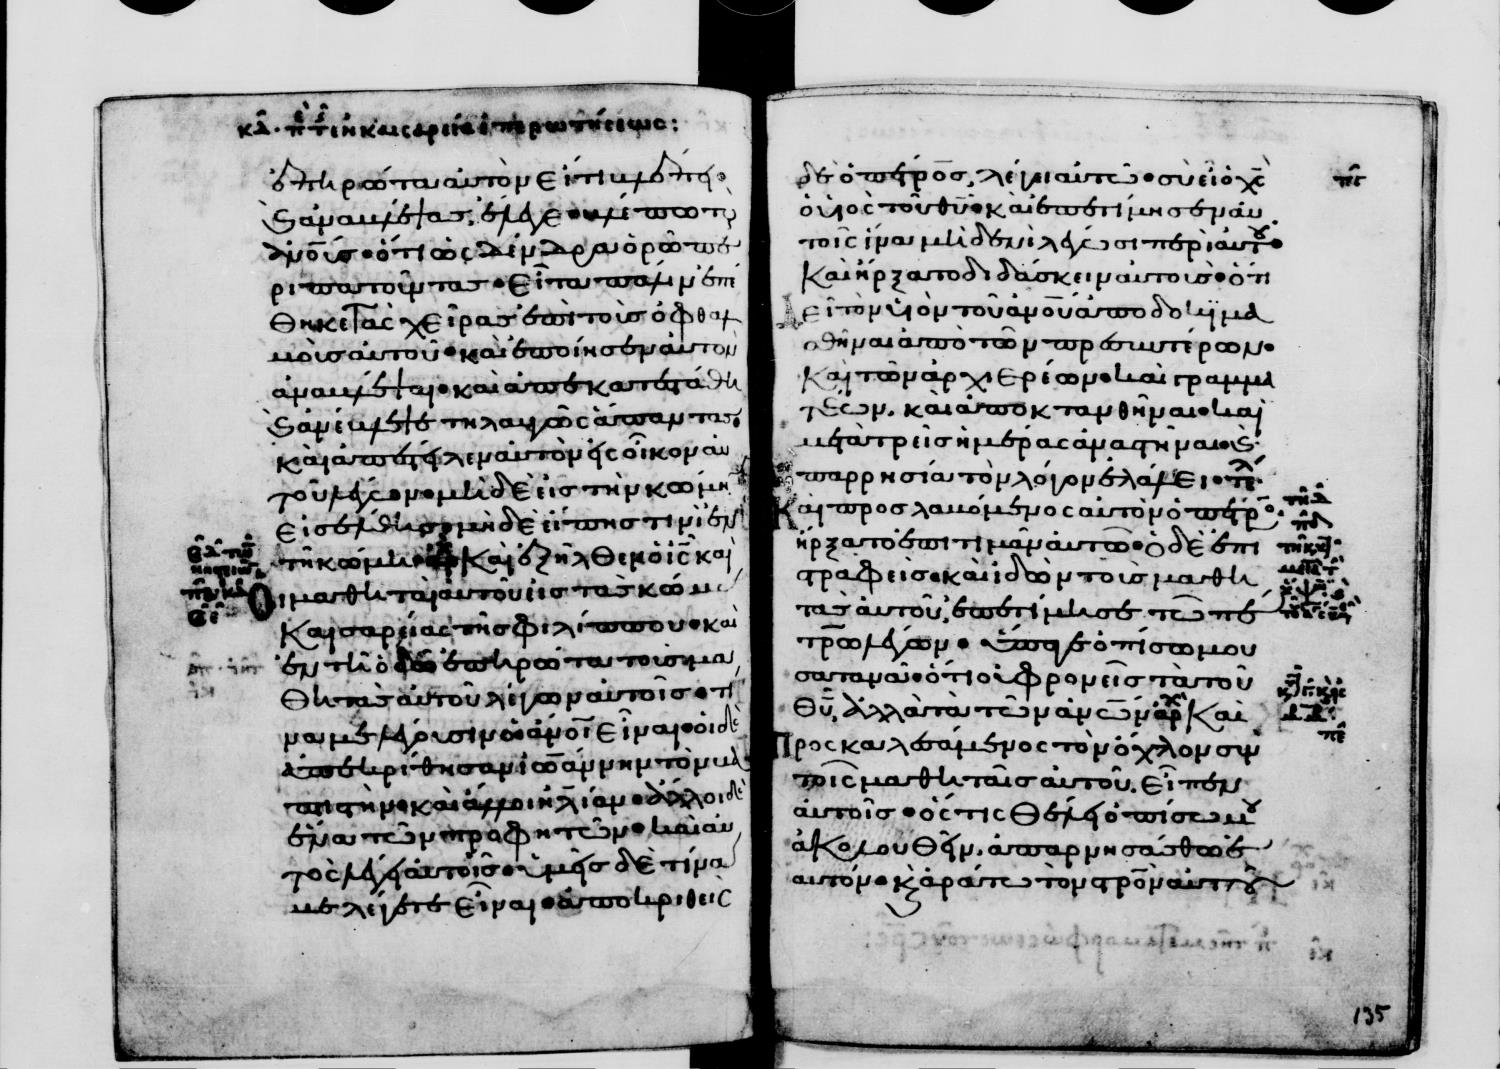 κδ· π τ ἐν καισαρεία ἐπερωτήσεως:
ἐπηρώτα αὐτὸν εἴ τι βλέπει·
κ ἀναβλέψας, ἔλεγε· βλέπω τοὺς
ἀνους· ὅτι ὡς δένδρα ὁρῶ πε
ριπατοῦντας· εἶτα πάλιν ἐπέ
θηκε τὰς χεῖρας ἐπὶ τοὺς ὀφθαλ
μοὺς αὐτοῦ· καὶ ἐποίησεν αὐτὸν
ἀναβλέψαι· καὶ ἀπεκατεστάθη
κ ἀνέβλεψε τηλαυγῶς ἅπαντας·
καὶ ἀπέστειλεν αὐτὸν εἰς οἶκον αυ
τοῦ λέγων· μηδὲ εἰς τὴν κώμην
εἰσέλθης· μηδὲ εἴπης τινὶ ἐν
τῆ κώμη· Καὶ ἐξῆλθεν ὁ ις καὶ
οἱ μαθηταὶ αὐτοῦ εἰς τὰς κώμας
Καισαρείας τῆς φιλίππου· καὶ
ἐν τῆ ὁδῶ ἐπηρώτα τοὺς μα
θητὰς αὐτοῦ λέγων αὐτοῖς· τί
να με λέγουσιν οἱ ἀνοι εἶναι· οἱ δὲ
ἀπεκρίθησαν· ἰωάννην τὸν βα
πτιστήν· καὶ ἄλλοι ἠλίαν· ἄλλοι δὲ
ἕνα τῶν προφητῶν· καὶ αὐ
τὸς λέγει αὐτοῖς· ὑμεῖς δὲ τίνα
με λέγετε εἶναι· ἀποκριθεὶς
δὲ ὁ πέτρος, λέγει αὐτῶ· σὺ εἶ ὁ χς
ὁ υἱος τοῦ θυ· καὶ ἐπετίμησεν αὐ
τοῖς ἵνα μηδενὶ λέγωσι περὶ αὐτοῦ·
Καὶ ἤρξατο διδάσκειν αὐτοὺς· ὅτι
δεῖ τὸν υἱὸν τοῦ ἀνου ἀποδοκιμα
σθῆναι ἀπὸ τῶν πρεσβυτέρων·
Καὶ τῶν ἀρχιερέων· καὶ γραμμα
τέων, καὶ ἀποκτανθῆναι· καὶ
μετὰ τρεῖς ἡμέρας ἀναστῆναι· κ
παρρησία τὸν λόγον ἐλάλει· τέλ
Καὶ προσλαβόμενος αὐτὸν ὁ πέτρος
ἤρξατο ἐπιτιμᾶν αὐτῶ· ὁ δὲ ἐπι
στραφεὶς· καὶ ἰδὼν τοὺς μαθη
τὰς αὐτοῦ, ἐπετίμησε τῶ πέ
τρω λέγων· ὕπαγε ὀπίσω μου
σατανᾶ· ὅτι οὐ φρονεῖς τὰ τοῦ
θυ, ἀλλὰ τὰ τῶν ἀνων· ἀρχ Καὶ
Προσκαλεσάμενος τὸν ὄχλον σὺν
τοῖς μαθηταῖς αὐτοῦ, εἶπεν
αὐτοῖς· ὅστις θέλει ὀπίσω μου
ἀκολουθεῖν, ἀπαρνησάσθω ἑ
αυτόν· κ ἀράτω τὸν στρον αὐτοῦ
135